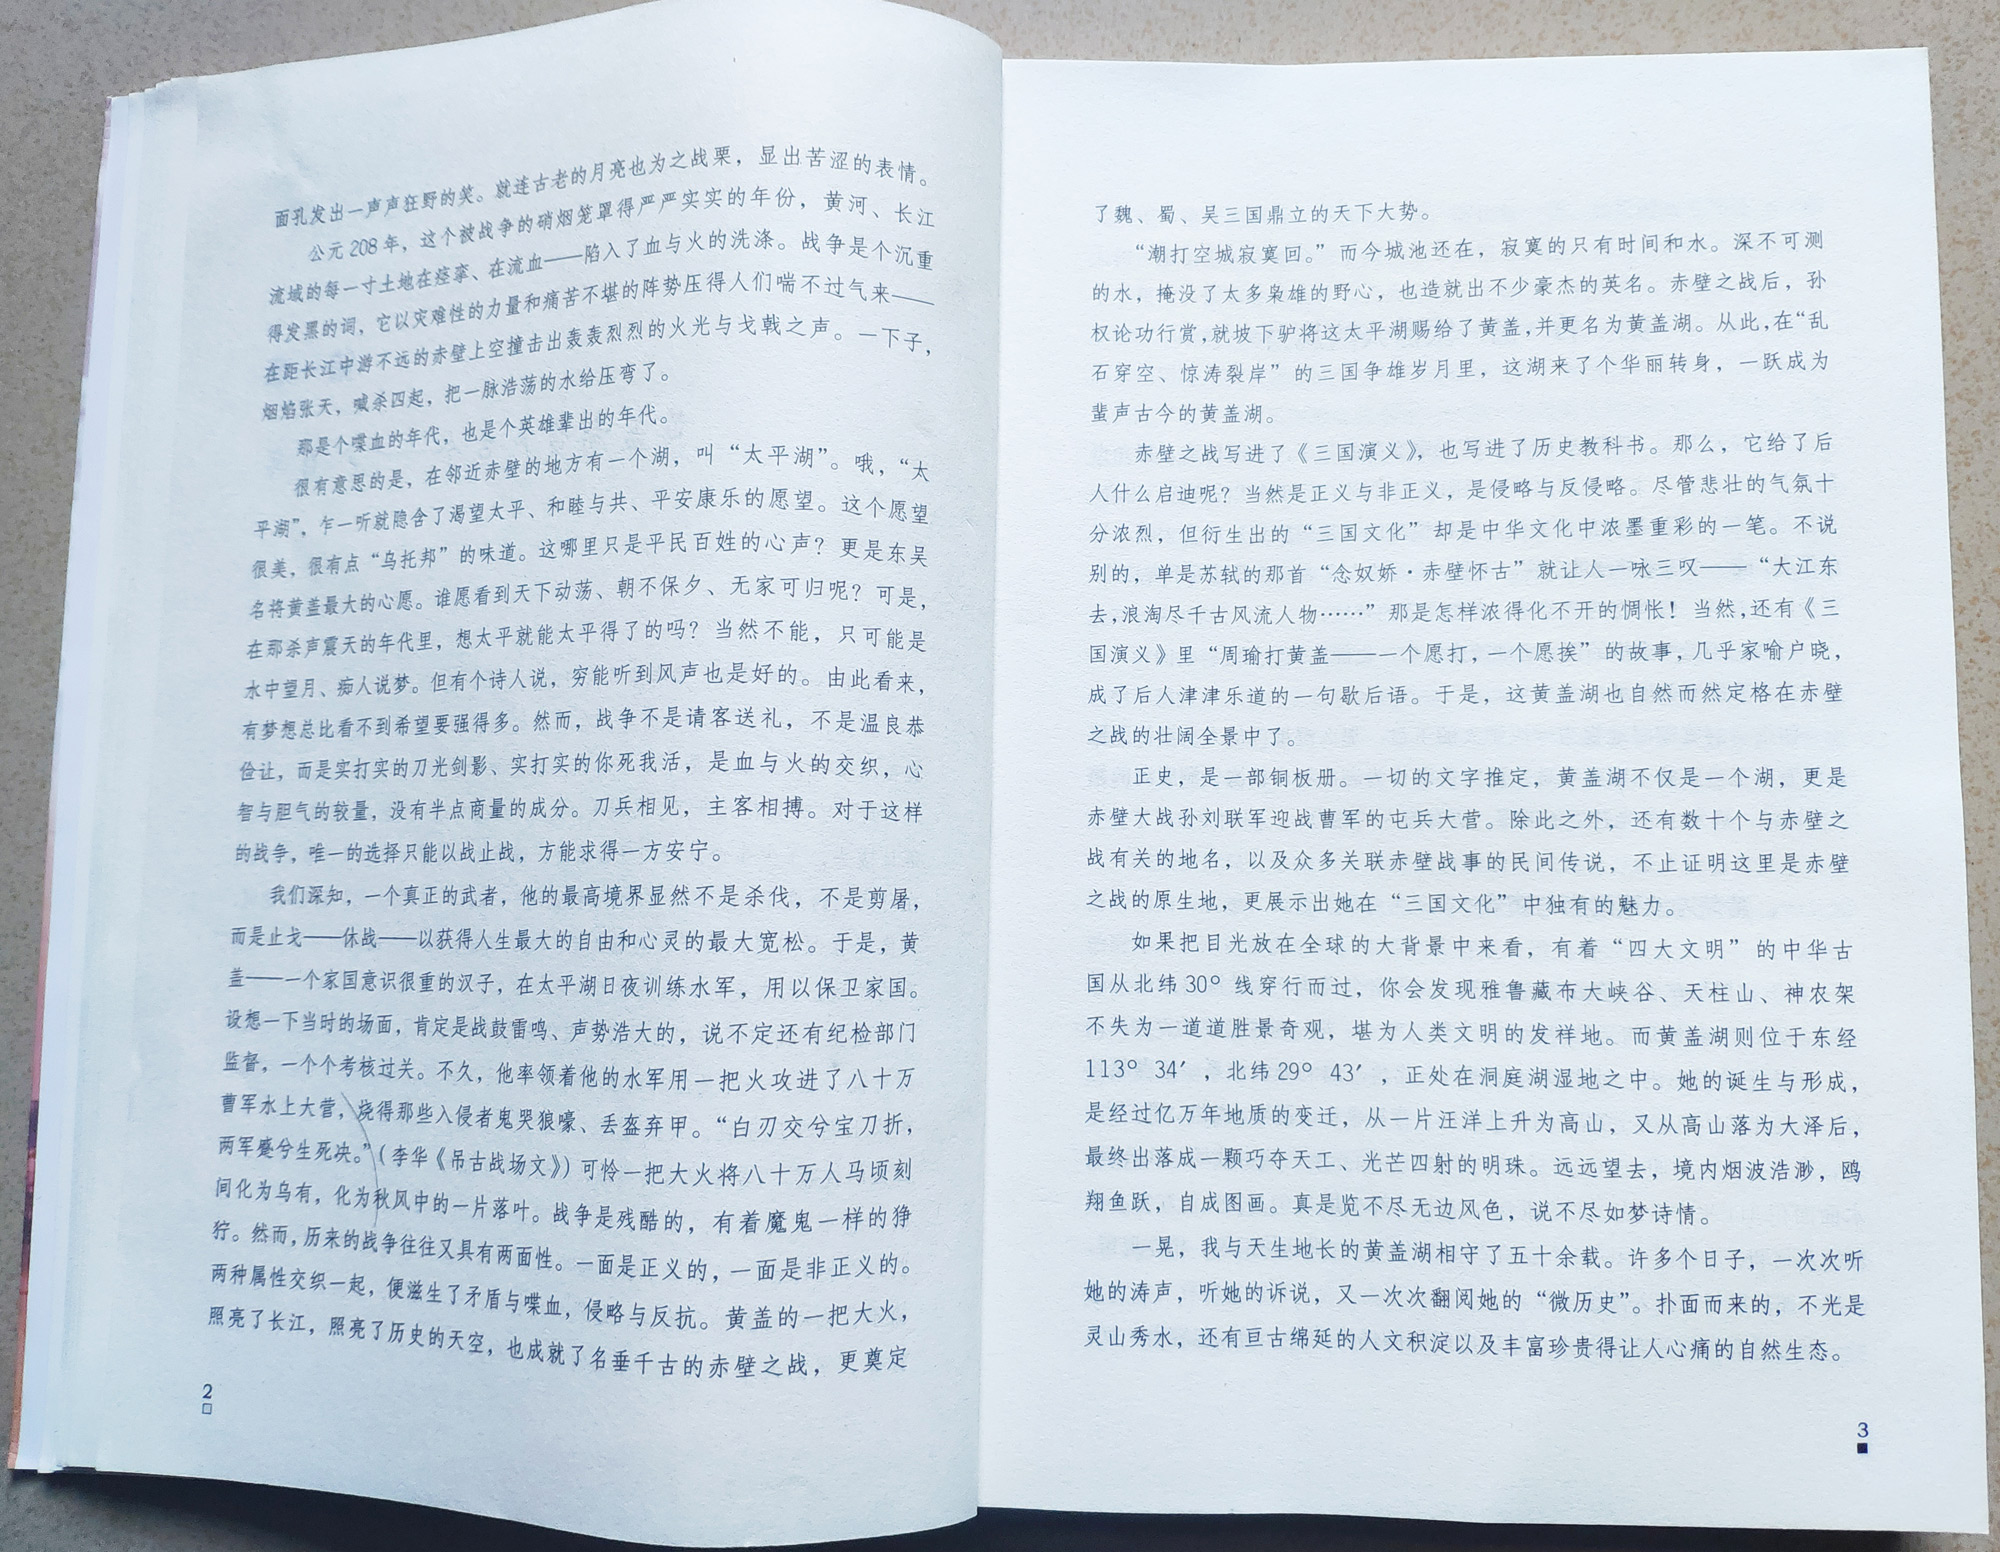 面孔发出一声声狂野的笑。就连古老的月亮也为之战栗，显出苦涩的表情。
公元208年，这个被战争的硝烟笼罩得严严实实的年份，黄河、长江
流域的每一寸土地在痉挛、在流血——陷入了血与火的洗涤。战争是个沉重
得发黑的词，它以灾难性的力量和痛苦不堪的阵势压得人们喘不过气来——
在距长江中游不远的赤壁上空撞击出轰轰烈烈的火光与戈戟之声。一下子，
烟焰张天，喊杀四起，把一脉浩荡的水给压弯了。
那是个喋血的年代，也是个英雄辈出的年代。
很有意思的是，在邻近赤壁的地方有一个湖，叫“太平湖”。哦，“太
平湖”，乍一听就隐含了渴望太平、和睦与共、平安康乐的愿望。这个愿望
很美，很有点“乌托邦”的味道。这哪里只是平民百姓的心声？更是东吴
名将黄盖最大的心愿。谁愿看到天下动荡、朝不保夕、无家可归呢？可是，
在那杀声震天的年代里，想太平就能太平得了的吗？当然不能，只可能是
水中望月、痴人说梦。但有个诗人说，穷能听到风声也是好的。由此看来，
有梦想总比看不到希望要强得多。然而，战争不是请客送礼，不是温良恭
俭让，而是实打实的刀光剑影、实打实的你死我活，是血与火的交织，心
智与胆气的较量，没有半点商量的成分。刀兵相见，主客相搏。对于这样
的战争，唯一的选择只能以战止战，方能求得一方安宁。
我们深知，一个真正的武者，他的最高境界显然不是杀伐，不是剪屠，
而是止戈——休战——以获得人生最大的自由和心灵的最大宽松。于是，黄
盖——一个家国意识很重的汉子，在太平湖日夜训练水军，用以保卫家国。
设想一下当时的场面，肯定是战鼓雷鸣、声势浩大的，说不定还有纪检部门
监督，一个个考核过关。不久，他率领着他的水军用一把火攻进了八十万
曹军水上大营，烧得那些入侵者鬼哭狼嚎、丢盔弃甲。“白刃交兮宝刀折，
两军蹙兮生死决。”（李华《吊古战场文》）可怜一把大火将八十万人马顷刻
间化为乌有，化为秋风中的一片落叶。战争是残酷的，有着魔鬼一样的狰
狞。然而，历来的战争往往又具有两面性。一面是正义的，一面是非正义的。
两种属性交织一起，便滋生了矛盾与喋血，侵略与反抗。黄盖的一把大火，
照亮了长江，照亮了历史的天空，也成就了名垂千古的赤壁之战，更奠定
2
了魏、蜀、吴三国鼎立的天下大势。
“潮打空城寂寞回。”而今城池还在，寂寞的只有时间和水。深不可测
的水，掩没了太多枭雄的野心，也造就出不少豪杰的英名。赤壁之战后，孙
权论功行赏，就坡下驴将这太平湖赐给了黄盖，并更名为黄盖湖。从此，在“乱
石穿空、惊涛裂岸”的三国争雄岁月里，这湖来了个华丽转身，一跃成为
蜚声古今的黄盖湖。
赤壁之战写进了《三国演义》，也写进了历史教科书。那么，它给了后
人什么启迪呢？当然是正义与非正义，是侵略与反侵略。尽管悲壮的气氛十
分浓烈，但衍生出的“三国文化”却是中华文化中浓墨重彩的一笔。不说
别的，单是苏轼的那首“念奴娇·赤壁怀古”就让人一咏三叹——“大江东
去，浪淘尽千古风流人物……”那是怎样浓得化不开的惆怅！当然，还有《三
国演义》里“周瑜打黄盖——一个愿打，一个愿挨”的故事，几乎家喻户晓，
成了后人津津乐道的一句歇后语。于是，这黄盖湖也自然而然定格在赤壁
之战的壮阔全景中了。
正史，是一部铜板册。一切的文字推定，黄盖湖不仅是一个湖，更是
赤壁大战孙刘联军迎战曹军的屯兵大营。除此之外，还有数十个与赤壁之
战有关的地名，以及众多关联赤壁战事的民间传说，不止证明这里是赤壁
之战的原生地，更展示出她在“三国文化”中独有的魅力。
如果把目光放在全球的大背景中来看，有着“四大文明”的中华古
国从北纬30°线穿行而过，你会发现雅鲁藏布大峡谷、天柱山、神农架
不失为一道道胜景奇观，堪为人类文明的发祥地。而黄盖湖则位于东经
113° 34′，北纬29° 43′，正处在洞庭湖湿地之中。她的诞生与形成，
是经过亿万年地质的变迁，从一片汪洋上升为高山，又从高山落为大泽后，
最终出落成一颗巧夺天工、光芒四射的明珠。远远望去，境内烟波浩渺，鸥
翔鱼跃，自成图画。真是览不尽无边风色，说不尽如梦诗情。
一晃，我与天生地长的黄盖湖相守了五十余载。许多个日子，一次次听
她的涛声，听她的诉说，又一次次翻阅她的“微历史”。扑面而来的，不光是
灵山秀水，还有亘古绵延的人文积淀以及丰富珍贵得让人心痛的自然生态。
3